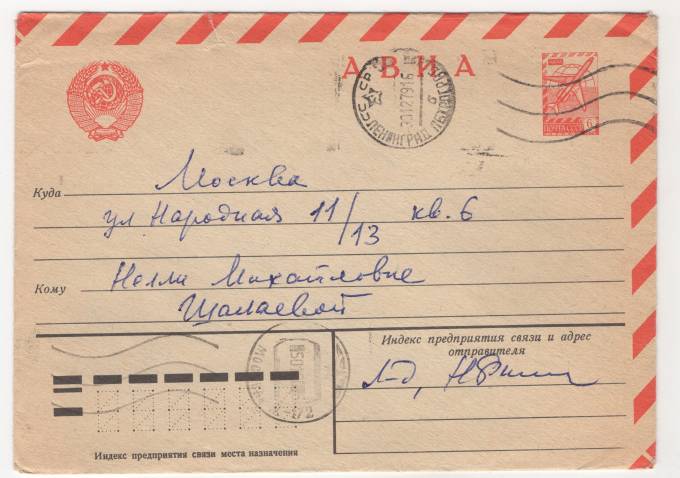 АВИА
СССР
301279 16
ЛЕНИНГРАД
ПОЧТА СССР 6
Куда Москва
ул Народная 11/13 кв. 6
Кому Нелли Михайловне
Щалаевой
Индекс предприятия связи и адрес
отправителя
Л-д,
Индекс предприятия связи места назначения